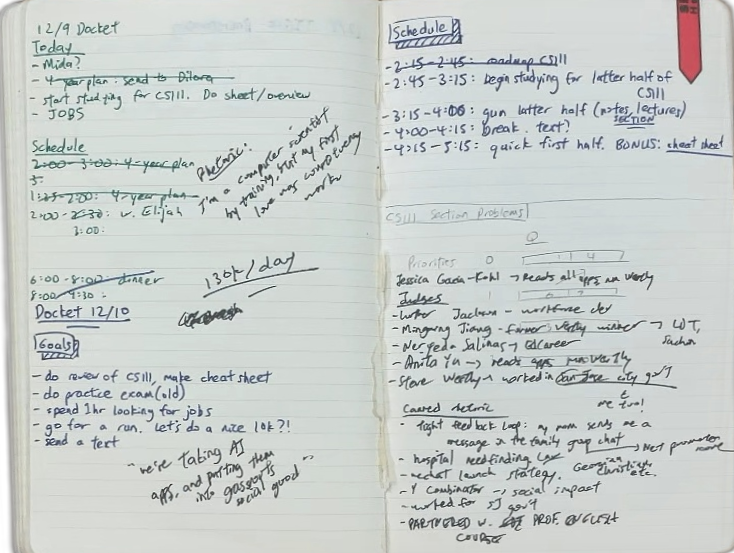 12/9 Docket
Today
- Mida?
- 4-year plan. send to Dilara
- start studying for CS111. Do sheet/overview
- JOBS
Schedule
2:00 - 3:00: 4-year plan
3:
1:25-2:00: 4-year plan
2:00 - 2:30: w. Elijah
3:00:
Rhetoric:
I'm a computer scientist
by training, but my first
love was
work
6:00 - 8:00 dinner
8:00 - 9:30:
130k/day
Docket 12/10
Goals
- do review of CS111, make cheat sheet
- do practice exam (old)
- spend 1hr looking for jobs
- go for a run. Let's do a nice 10k?!
- send a text
"we're taking AI
apps, and putting them
into grassroots
social good"
Schedule
- 2:15 - 2:45: roadmap CS111
- 2:45 - 3:15: begin studying for latter half of
CS111
- 3:15 - 4:00: gun latter half (notes, lectures)
SECTION
- 4:00 - 4:15: break. text?
- 4:15 - 5:15: quick first half. BONUS: cheat sheet
CS111 Section Problems
Q
Priorities 0 1 4
Jessica Garcia-Kohl → Reads all apps
Judges
Jackson - workforce dev
- Mingming Jiang - former winner →
- Nereyda Salinas →
- Anita Yu → reads apps
- Steve Worthy → worked in San Jose city gov't
me too!
rhetoric
- Tight feedback loop: my mom sends me a
message in the family group chat
→ Net promoter
- hospital needfinding
- launch strategy. Georgian
Christian,
etc.
- Y Combinator → social impact
- worked for SJ gov't
- PARTNERED W. PROF. ENGLISH
COURSE